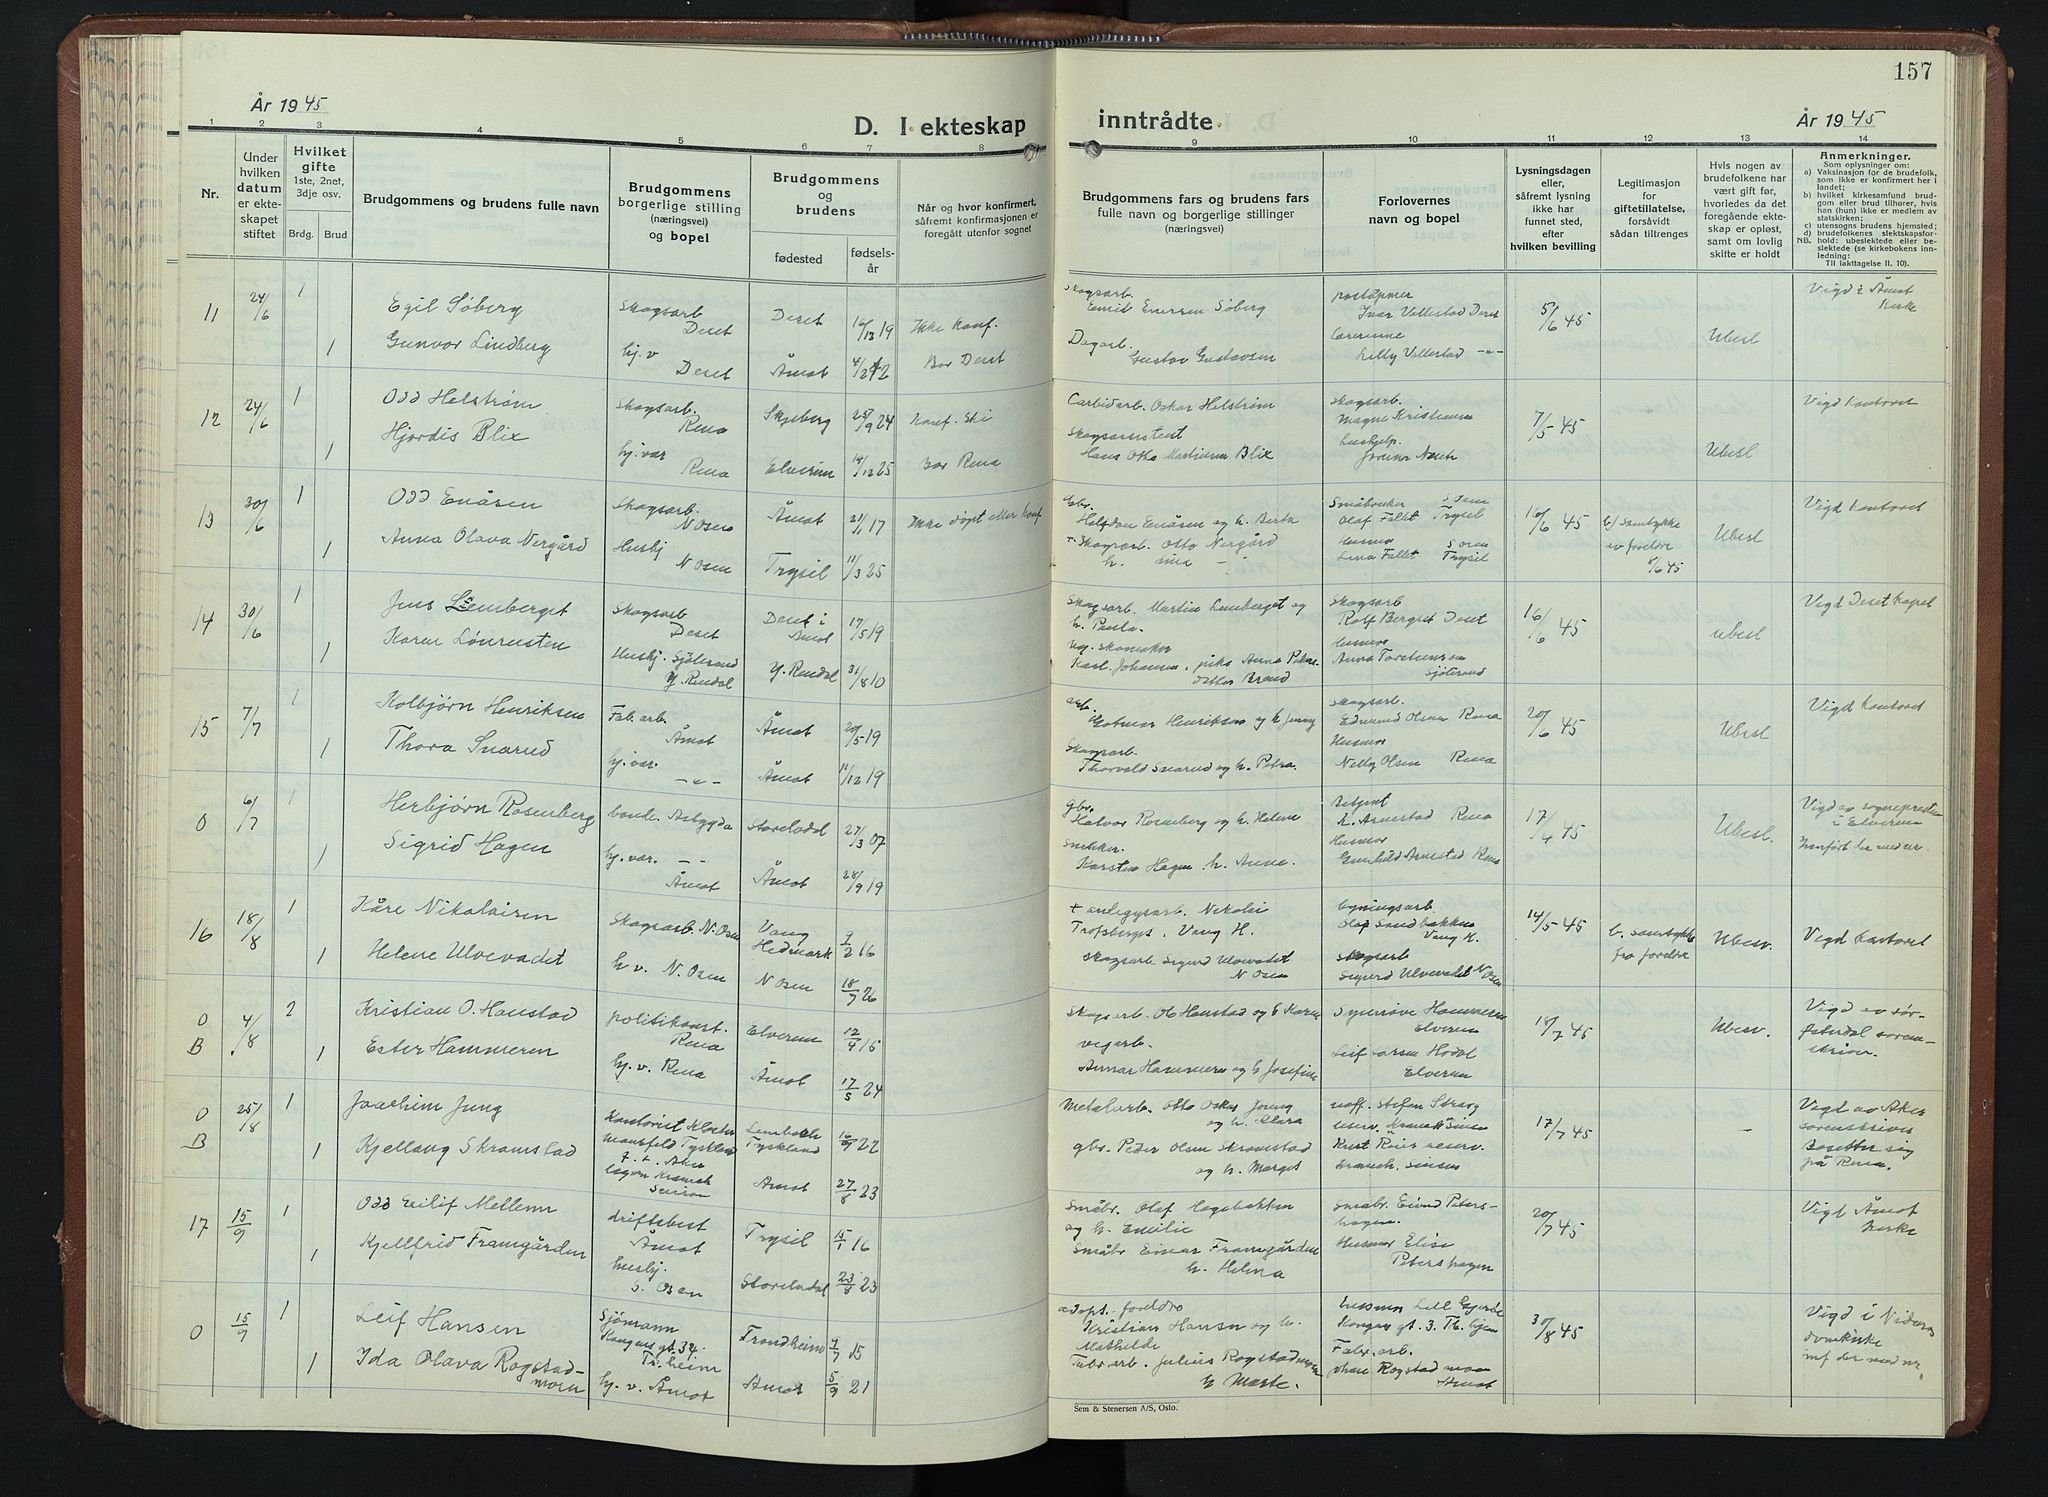 157
År 1945
D. I ekteskap inntrådte.
År 1945
1 2 3 4 5 6 7 8 9 10 11 12 13 14
Nr.
Under hvilken datum er ekteskapet stiftet
Hvilket gifte 1ste, 2net, 3dje osv.
Brdg. Brud
Brudgommens og brudens fulle navn
Brudgommens borgerlige stilling (næringsvei) og bopel
Brudgommens og brudens
fødested
fødselsår
Når og hvor konfirmert, såfremt konfirmasjonen er foregått utenfor sognet
Brudgommens fars og brudens fars fulle navn og borgerlige stillinger (næringsvei)
Forlovernes navn og bopel
Lysningsdagen eller, såfremt lysning ikke har funnet sted, efter hvilken bevilling
Legitimasjon for giftetillatelse, forsåvidt sådan tiltrenges
Hvis nogen av brudefolkene har vært gift før, hvorledes da det foregående ekteskap er opløst, samt om lovlig skifte er holdt
Anmerkninger.
Som oplysninger om:
a) Vaksinasjon for de brudefolk, som ikke er konfirmert her i landet;
b) hvilket kirkesamfund brudgom eller brud tilhører, hvis han (hun) ikke er medlem av statskirken;
c) utensogns brudens hjemsted;
d) brudefolkenes slektskapsforhold: ubeslektede eller beslektede (se kirkebokens innledning:
NB. Til iakttagelse II. 10).
11 24/6 1 Egil Søberg Skogsarb Deset Deset 16/12 19 Ikke konf. Skogsarb. Emil Enersen Søberg Ivar Vellestad Deset 5/6 45 Ubesl Vigd i Åmot kirke
1 Gunvor Lindberg hj. v Deset Åmot Bor Deset Dagarb. Gustav Gustavsen Lilly Vellestad -"-
12 24/6 1 Odd Helstrøm Skogsarb. Rena Skjeberg 25/9 24 Konf. Ski Carbidarb. Oskar Helstrøm Skogsarb. Magne Kristiansen 7/5 45 Ubesl Vigd kontoret
1 Hjørdis Blix hj. var Rena Elverum 14/12 25 Bor Rena Skogsassistent Hans Otto Martinsen Blix hushjelp.
13 30/6 1 Odd Enåsen Skogsarb. N Osen Åmot 21/1 17 Ikke døpt eller konf Gbr. Halfdan Enåsen og h. Berta Småbruker Olaf Fallet Trysil 16/6 45 b/ samtykke av foreldre 1/6 45 Ubesl Vigd kontoret
1 Anna Olava Nergård Hushj N Osen Trysil 11/3 25 + Skogarb. Otto Nergård h. Husmor Lina Fallet Trysil
14 30/6 1 Jens Lemberget Skogsarb Deset Deset i Åmot 17/5 19 Skogsarb. Martin Lemberget og h. Paula. Skogsarb Rolf Berget Deset 16/6 45 Ubesl Vigd Deset kapel
1 Karen Lønrusten Hushj. Sjølisand Y. Rendal Y. Rendal 31/8 10 Karl Johansen, pike Anna Husmor Anna Torstensen
15 7/7 1 Kolbjørn Henriksen Fab. arb. Åmot Åmot 20/5 19 arb. Henriksen og h Jenny Skogsarb. Edmund Olsen Rena 20/6 45 Ubesl Vigd kontoret
1 Thora Snarud hj. var. -"- Åmot 11/12 19 Skogsarb. Thorvald Snarud og h. Petra. Husmor Nelly Olsen Rena
0 6/7 1 Herbjørn Rosenberg bonde. Åsbygda Storelvdal 27/3 07 gbr. Halvor Rosenberg og h. Helene Betjent Arnestad Rena 17/4 45 Ubesl. Vigd av sognepresten i Elverum
1 Sigrid Hagen hj. var. Åmot Åmot 28/9 19 Snekker. Karsten Hagen h. Anne. Husmor Gunhild Arnestad Rena
16 18/8 1 Kåre Nikolaisen Skogsarb N. Osen Vang Hedmark 9/2 16 + anlegsarb. Nikolai Trofsberget, Vang H. bygningsarb. Olaf Sandbakken Vang H. 14/5 45 b. samtykke fra foreldre Ubesv. Vigd kontoret
1 Helene Ulvevadet h v. N. Osen N Osen 18/7 26 skogsarb Sigurd Ulvevadet N Osen skogsarb Sigurd Ulvevadet N Osen
0 B 4/8 2 Kristian O. Hanstad politikonst. Rena Elverum 12/4 15 Skogsarb. Ole Hanstad og h Karen Synnøve Hammeren Elverum 18/7 45 Ubesv. Vigd av sør-Østerdal sorenskriver.
1 Ester Hammeren hj. v. Rena Åmot 17/5 24 vegarb. Annar Hammeren og h Josefine Leif Larsen Hodal Elverum
0 B 25/8 1 Joachim Jung Kontorist Tyskland Tyskland 16/9 22 metalarb. Otto Oskar Joung og h. Klara Stefan 17/7 45 - Vigd av Aker sorenskriver Bosetter sig på Rena.
1 Kjellaug Skramstad Åmot 27/8 23 gbr. Peder Olsen Skramstad og h. Marget
17 15/9 1 Odd Eilif Mellem driftsbest Åmot Trysil 15/1 16 Småbr. Olaf Hagebakken og h. Emilie Småbr. Eivind Petershagen. 20/7 45 Vigd Åmot kirke
1 Kjellfrid Framgården hushj. S. Osen Storelvdal 23/8 23 Småbr Einar Framgården h. Helena Husmor Elise Petershagen
0 15/9 1 Leif Hansen Sjømann Kongens gt. 34. Tr.heim Trondheim 7/7 15 adopt. foreldre Kristian Hansen og h. Mathilde husmor Lill Gjerde Kongens gt. 3. Tr. hjem 30/8 45 Vigd i Nidaros domkirke inf der med nr
1 Ida Olava Rogstadmoen hj. v. Åmot Åmot 5/9 21 Fabr arb. Julius Rogstadmoen h Marte. Fabr. arb. Johan Rogstadmoen Åmot
Sem & Stenersen A/S, Oslo.